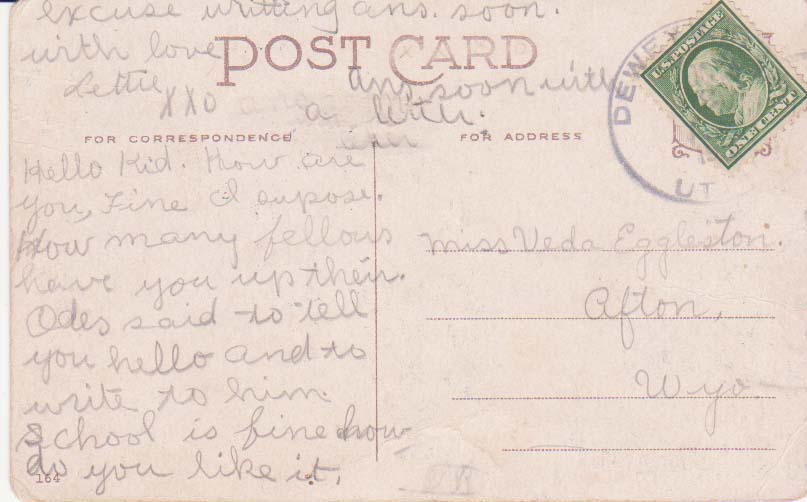 excuse writting ans. soon.
with love
Lettie
XXO
POST CARD
ans soon with
a
FOR CORRESPONDENCE
FOR ADDRESS
Hello Kid. How are
you, Fine I supose.
How many fellows
have you up their.
Odes said to tell
you hello and to
write to him.
School is fine how
do you like it.
164
DEWE
UT
U.S. POSTAGE
ONE CENT
Miss Veda Eggleston.
Afton,
Wyo.